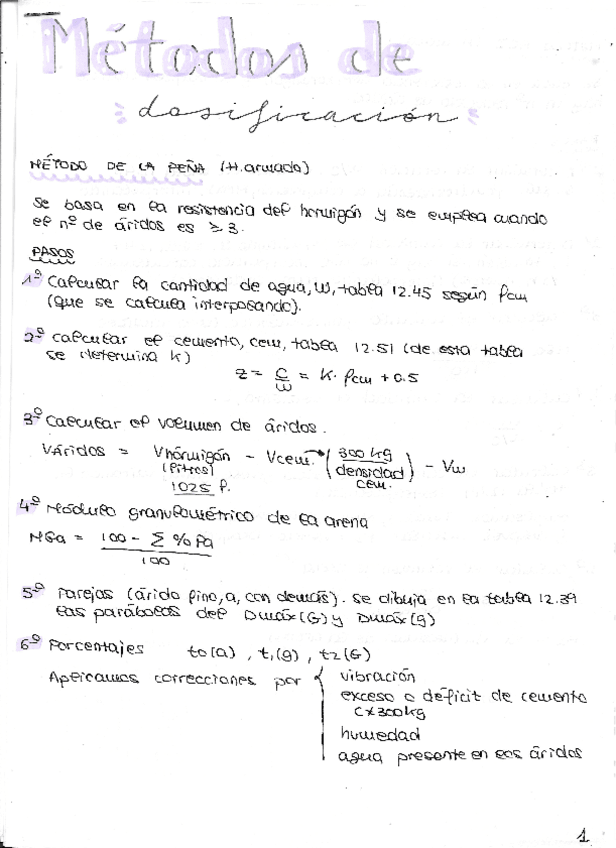 Métodos de
dosificación
MÉTODO DE LA PEÑA (H. armado)
Se basa en la resistencia del hormigón y se emplea cuando
el nº de áridos es ≥ 3.
PASOS
1º Calcular la cantidad de agua, W, tabla 12.45 según fcm
(que se calcula interpolando).
2º Calcular el cemento, cem, tabla 12.51 (de esta tabla
se determina K)
z = C/W = K · fcm + 0.5
3º Calcular el volumen de áridos.
Váridos = Vhormigón (litres) 1025 l. - Vcem. → (300 kg / densidad cem.) - Vw
4º Módulo granulométrico de la arena
MGa = 100 - Σ % Pa / 100
5º Parejas (árido fino, a, con demás). Se dibuja en la tabla 12.39
las parábolas del Dmáx (G) y Dmáx (g)
6º Porcentajes to (a), t1 (g), t2 (G)
Aplicamos correcciones por { vibración
exceso o déficit de cemento
C × 300 kg
humedad
agua presente en los áridos
1